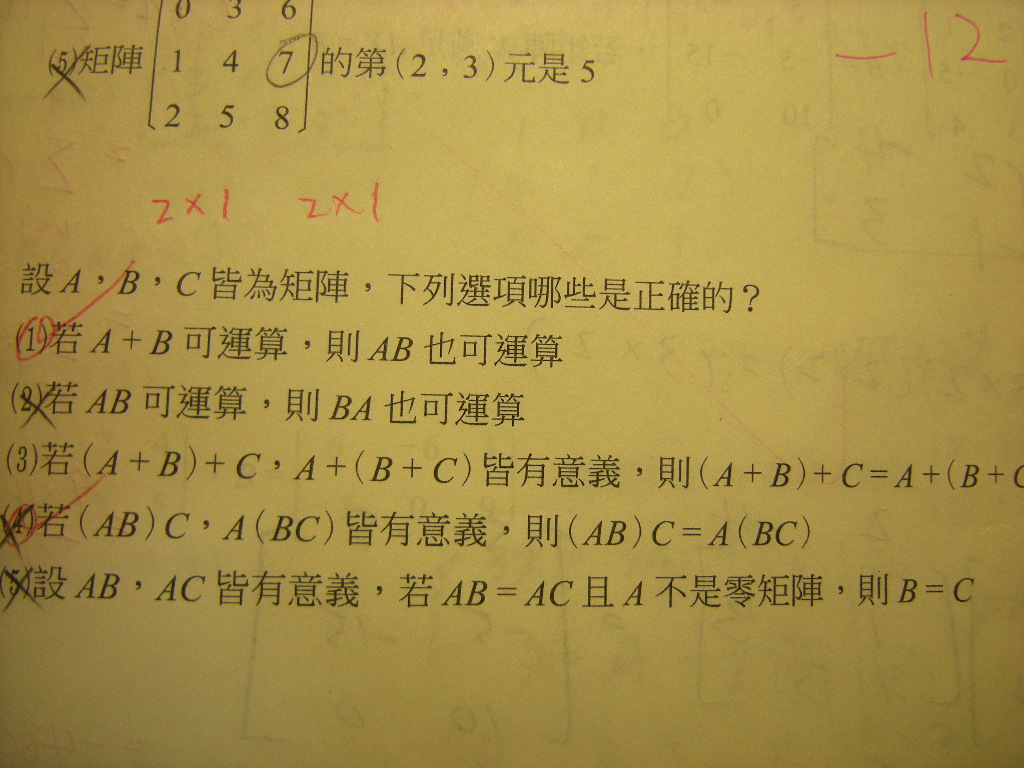 0 3 6
(5)矩陣 1 4 7 的第(2,3)元是5
2 5 8
-12
2×1 2×1
設A,B,C皆為矩陣,下列選項哪些是正確的?
(1)若A+B可運算,則AB也可運算
(2)若AB可運算,則BA也可運算
(3)若(A+B)+C,A+(B+C)皆有意義,則(A+B)+C=A+(B+C
(4)若(AB)C,A(BC)皆有意義,則(AB)C=A(BC)
(5)設AB,AC皆有意義,若AB=AC且A不是零矩陣,則B=C